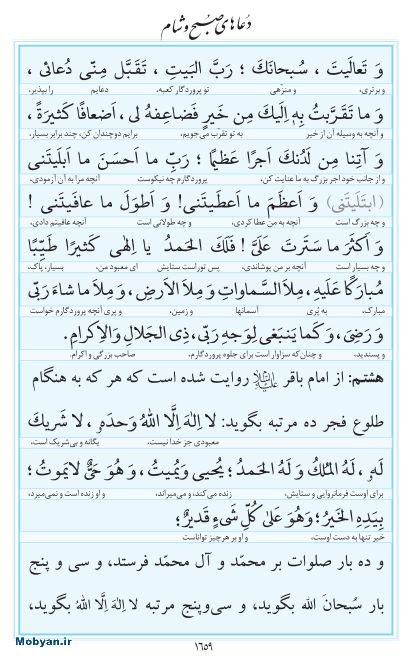 دعاهای صبح و شام
وَ تَعالَیتَ ، سُبحانَكَ ؛ رَبَّ البَیتِ ، تَقَبَّل مِنّی دُعائی ،
و برتری، و منزّهی تو پروردگار کعبه، دعایم را بپذیر،
وَ ما تَقَرَّبتُ بِهِ إلَیكَ مِن خَیرٍ فَضاعِفهُ لی ، أضعافًا کَثیرَةً ،
و آنچه به وسیله آن از خیر به تو تقرب می‌جویم، برایم دوچندان کن، چند برابر بسیار،
وَ آتِنا مِن لَدُنكَ أجرًا عَظیمًا ؛ رَبِّ ما أحسَنَ ما أبلَیتَنی
و از جانب خود اجر بزرگ به ما عنایت کن، پروردگارم چه نیکوست آنچه مرا به آن آزمودی،
(ابتَلَیتَنی) وَ أعظَمَ ما أعطَیتَنی! وَ أطوَلَ ما عافَیتَنی !
و چه بزرگ است آنچه به من عطا کردی، و چه طولانی است آنچه عافیتم دادی،
وَ أکثَرَ ما سَتَرتَ عَلَیَّ! فَلَكَ الحَمدُ یا إلهی کَثیرًا طَیِّبًا
و چه بسیار است آنچه بر من پوشاندی، پس توراست ستایش ای معبود من، بسیار، پاک،
مُبارَکًا عَلَیهِ، مِلأَ السَّماواتِ وَ مِلأَ الأرضِ، وَ مِلأَ ما شاءَ رَبّی
مبارک، به پُری آسمانها و زمین، و پری آنچه پروردگارم خواست
وَ رَضِیَ، وَ کَما یَنبَغی لِوَجهِ رَبّی، ذِی الجَلالِ وَ الإکرامِ.
و پسندید، و چنان‌که سزاوار است برای جلوه پروردگارم، صاحب بزرگی و اکرام.
هشتم: از امام باقر علیه‌السلام روایت شده است که هر که به هنگام
طلوع فجر ده مرتبه بگوید: لا إلهَ إلَّا اللهُ وَحدَهُ، لا شَریكَ
معبودی جز خدا نیست، یگانه و بی‌شریک است،
لَهُ ، لَهُ المُلكُ وَ لَهُ الحَمدُ ؛ یُحیی وَ یُمیتُ ، وَ هُوَ حَیٌّ لایَموتُ ؛
برای اوست فرمانروایی و ستایش، زنده می‌کند، و می‌میراند، و او زنده است و نمی‌میرد،
بِیَدِهِ الخَیرُ ؛ وَ هُوَ عَلی کُلِّ شَیءٍ قَدیرٌ ؛
خیر تنها به دست اوست، و او بر هرچیز تواناست
و ده بار صلوات بر محمّد و آل محمّد فرستد، و سی و پنج
بار سُبحانَ الله بگوید، و سی‌وپنج مرتبه لا إلهَ إلَّا اللهُ بگوید،
١٦٥٩
Mobyan.ir